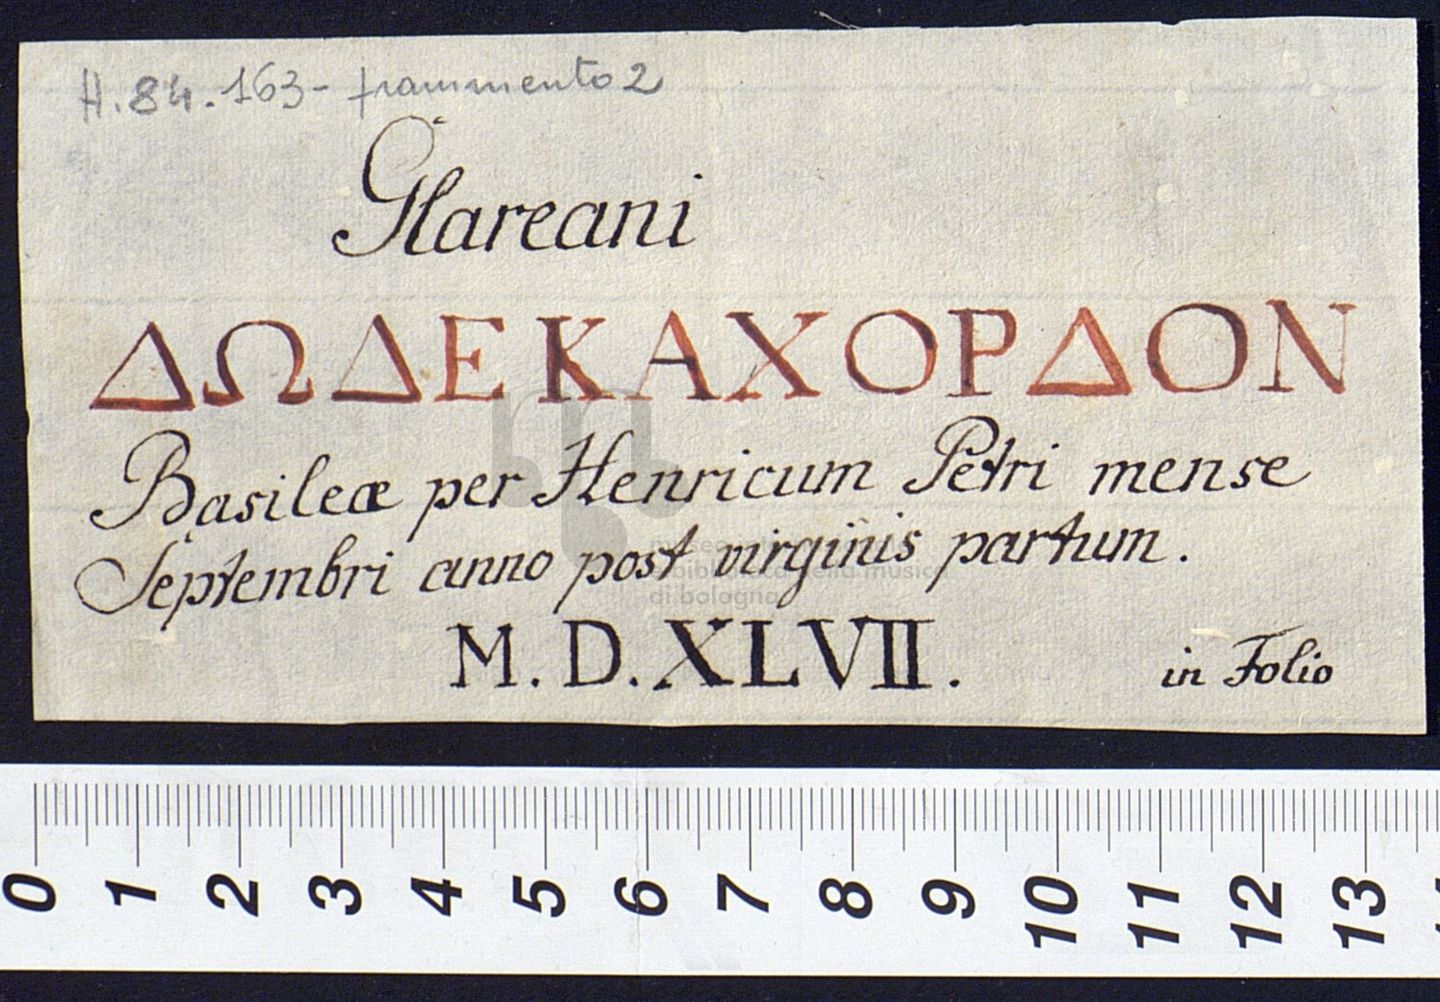 H.84.163- frammento 2
Glareani
ΔΩΔΕΚΑΧΟΡΔΟΝ
Basileæ per Henricum Petri mense
Septembri anno post virginis partum.
M.D.XLVII.
in Folio
museo
e biblioteca della musica
di bologna
0 1 2 3 4 5 6 7 8 9 10 11 12 13